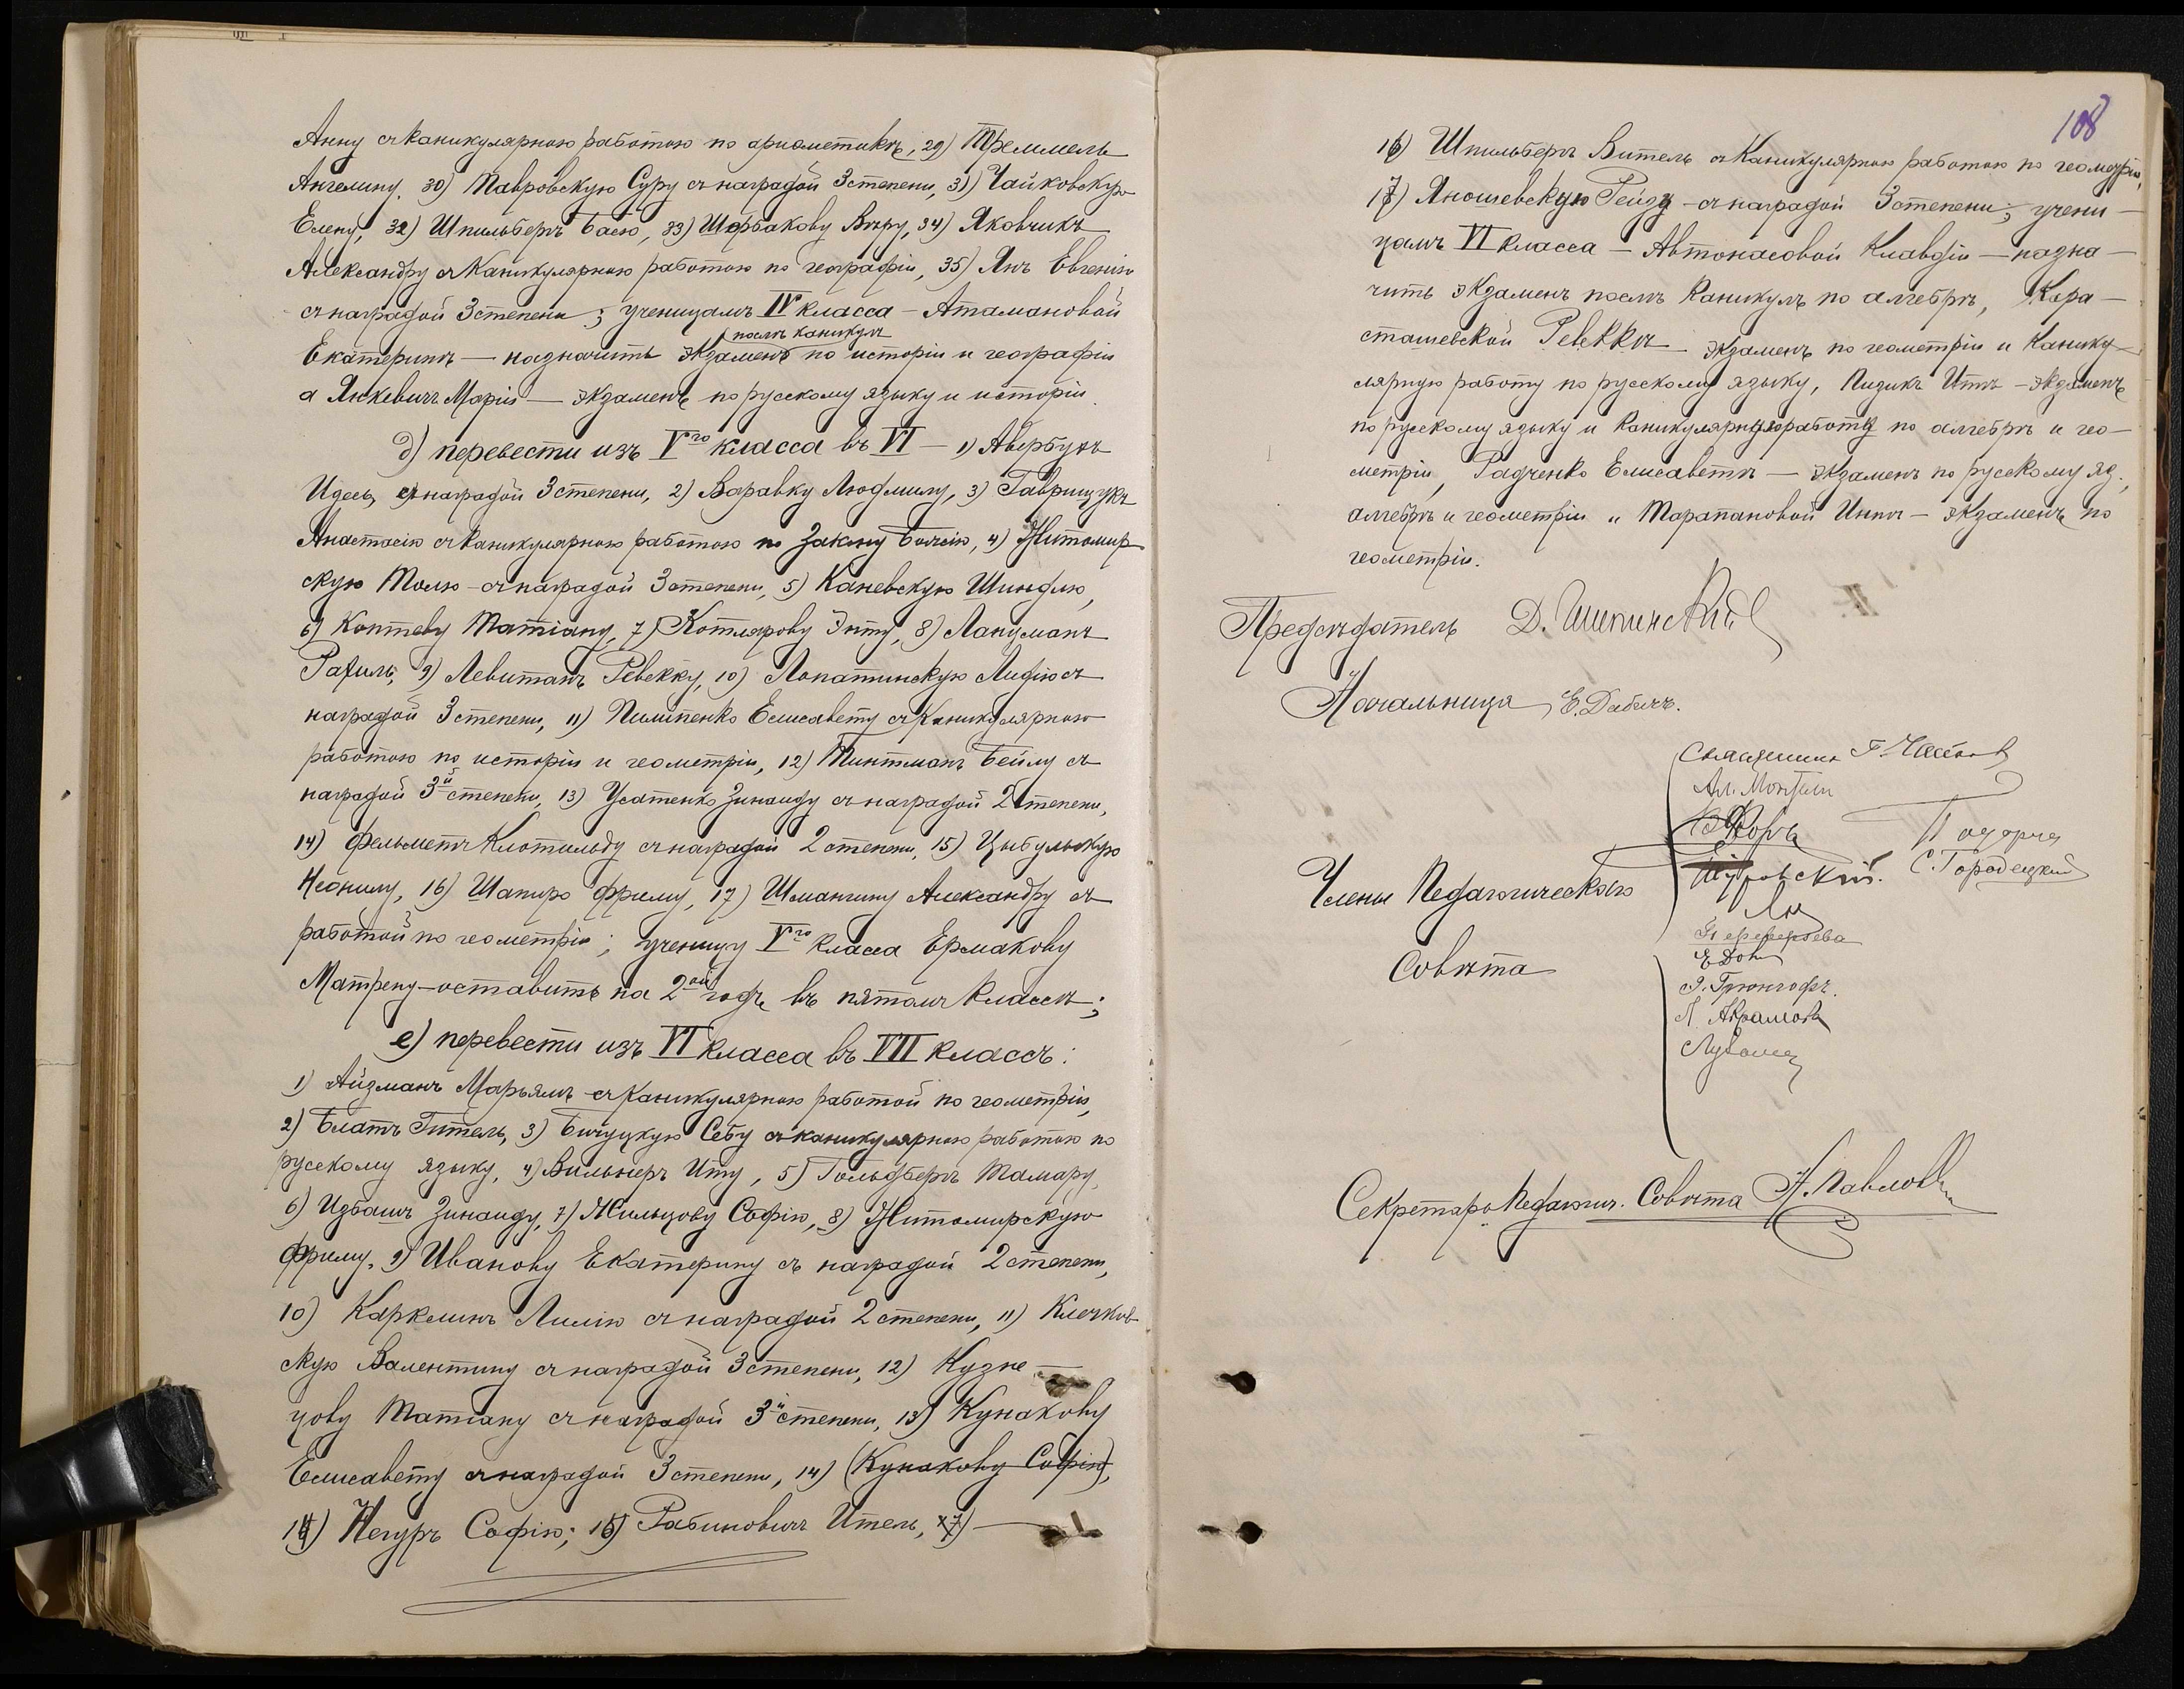 Анну съ каникулярною работою по ариѳметикѣ, 29) Треммель
Ангелину, 30) Тавровскую Суру съ наградой 3 степени, 31) Чайковскую
Елену, 32) Шпильбергъ Басю, 33) Щербакову Вѣру, 34) Яковчикъ
Александру съ каникулярною работою по географіи, 35) Янъ Евгенію
съ наградой 3 степени; ученицамъ IV класса – Атамановой
послѣ каникулъ
Екатеринѣ — назначить экзаменъ по исторіи и географіи
а Янкевичъ Маріи — экзаменъ по русскому языку и исторіи.
д) перевести изъ V го класса въ VI – 1) Авербухъ
Идесь, съ наградой 3 степени, 2) Варавку Людмилу, 3) Гаврищукъ
Анастасію съ каникулярною работою по Закону Божію, 4) Житомир
скую Молю – съ наградой 3 степени, 5) Каневскую Шиндлю,
6) Коптеву Татіану, 7) Котлярову Энту, 8) Лацманъ
Рахиль, 9) Левитанъ Ревекку, 10) Лопатинскую Лидію съ
наградой 3 степени, 11) Пилипенко Елисавету съ каникулярною
работою по исторіи и геометріи, 12) Тинтманъ Бейлу съ
наградой 3й степени, 13) Усатенко Зинаиду съ наградой 2 степени,
14) Фельметъ Клотильду съ наградой 2 степени, 15) Цыбульскую
Неонилу, 16) Шапиро Фриму, 17) Шмангину Александру съ
работой по геометріи; ученицу V го класса Ермакову
Матрену – оставить на 2ой годъ въ пятомъ классѣ;
е) перевести изъ VI класса въ VII классъ:
1) Айзманъ Марьямъ съ каникулярною работой по геометріи,
2) Блатъ Гитель, 3) Бичуцкую Себу съ каникулярною работою по
русскому языку, 4) Вильнеръ Иту, 5) Гольдбергъ Тамару,
6) Избашъ Зинаиду, 7) Жильцову Софію, 8) Житомирскую
Фриму, 9) Иванову Екатерину съ наградой 2 степени,
10) Карклинъ Лилію съ наградой 2 степени, 11) Клечков
скую Валентину съ наградой 3 степени, 12) Кузне —
цову Татіану съ наградой 3й степени, 13) Кунакову
Елисавету съ наградой 3 степени, 14) (Кунакову Софію),
14) Негуръ Софію; 15) Рабиновичъ Итель, 17) —
108
16) Шпильбергъ Витель съ каникулярною работою по геометріи,
17) Яношевскую Рейзу – съ наградой 3 степени; учени –
цамъ VI класса – Автонасовой Клавдіи — назна –
чить экзаменъ послѣ каникулъ по алгебрѣ, Кора –
сташевской Ревеккѣ — экзаменъ по геометріи и канику –
лярную работу по русскому языку, Пизикъ Итѣ – экзаменъ
по русскому языку и каникулярную работу по алгебрѣ и гео –
метріи, Радченко Елисаветѣ — экзаменъ по русскому яз.,
алгебрѣ и геометріи и Тарапановой Иннѣ – экзаменъ по
геометріи.
Предсѣдатель Д. Шепинскій
Начальница Е. Дабичъ.
Священникъ
Ал.
С. Городецкій
Члены Педагогическаго
Совѣта
Э. Грюнгофъ.
Секретарь Педагогич. Совѣта Н. Павлов